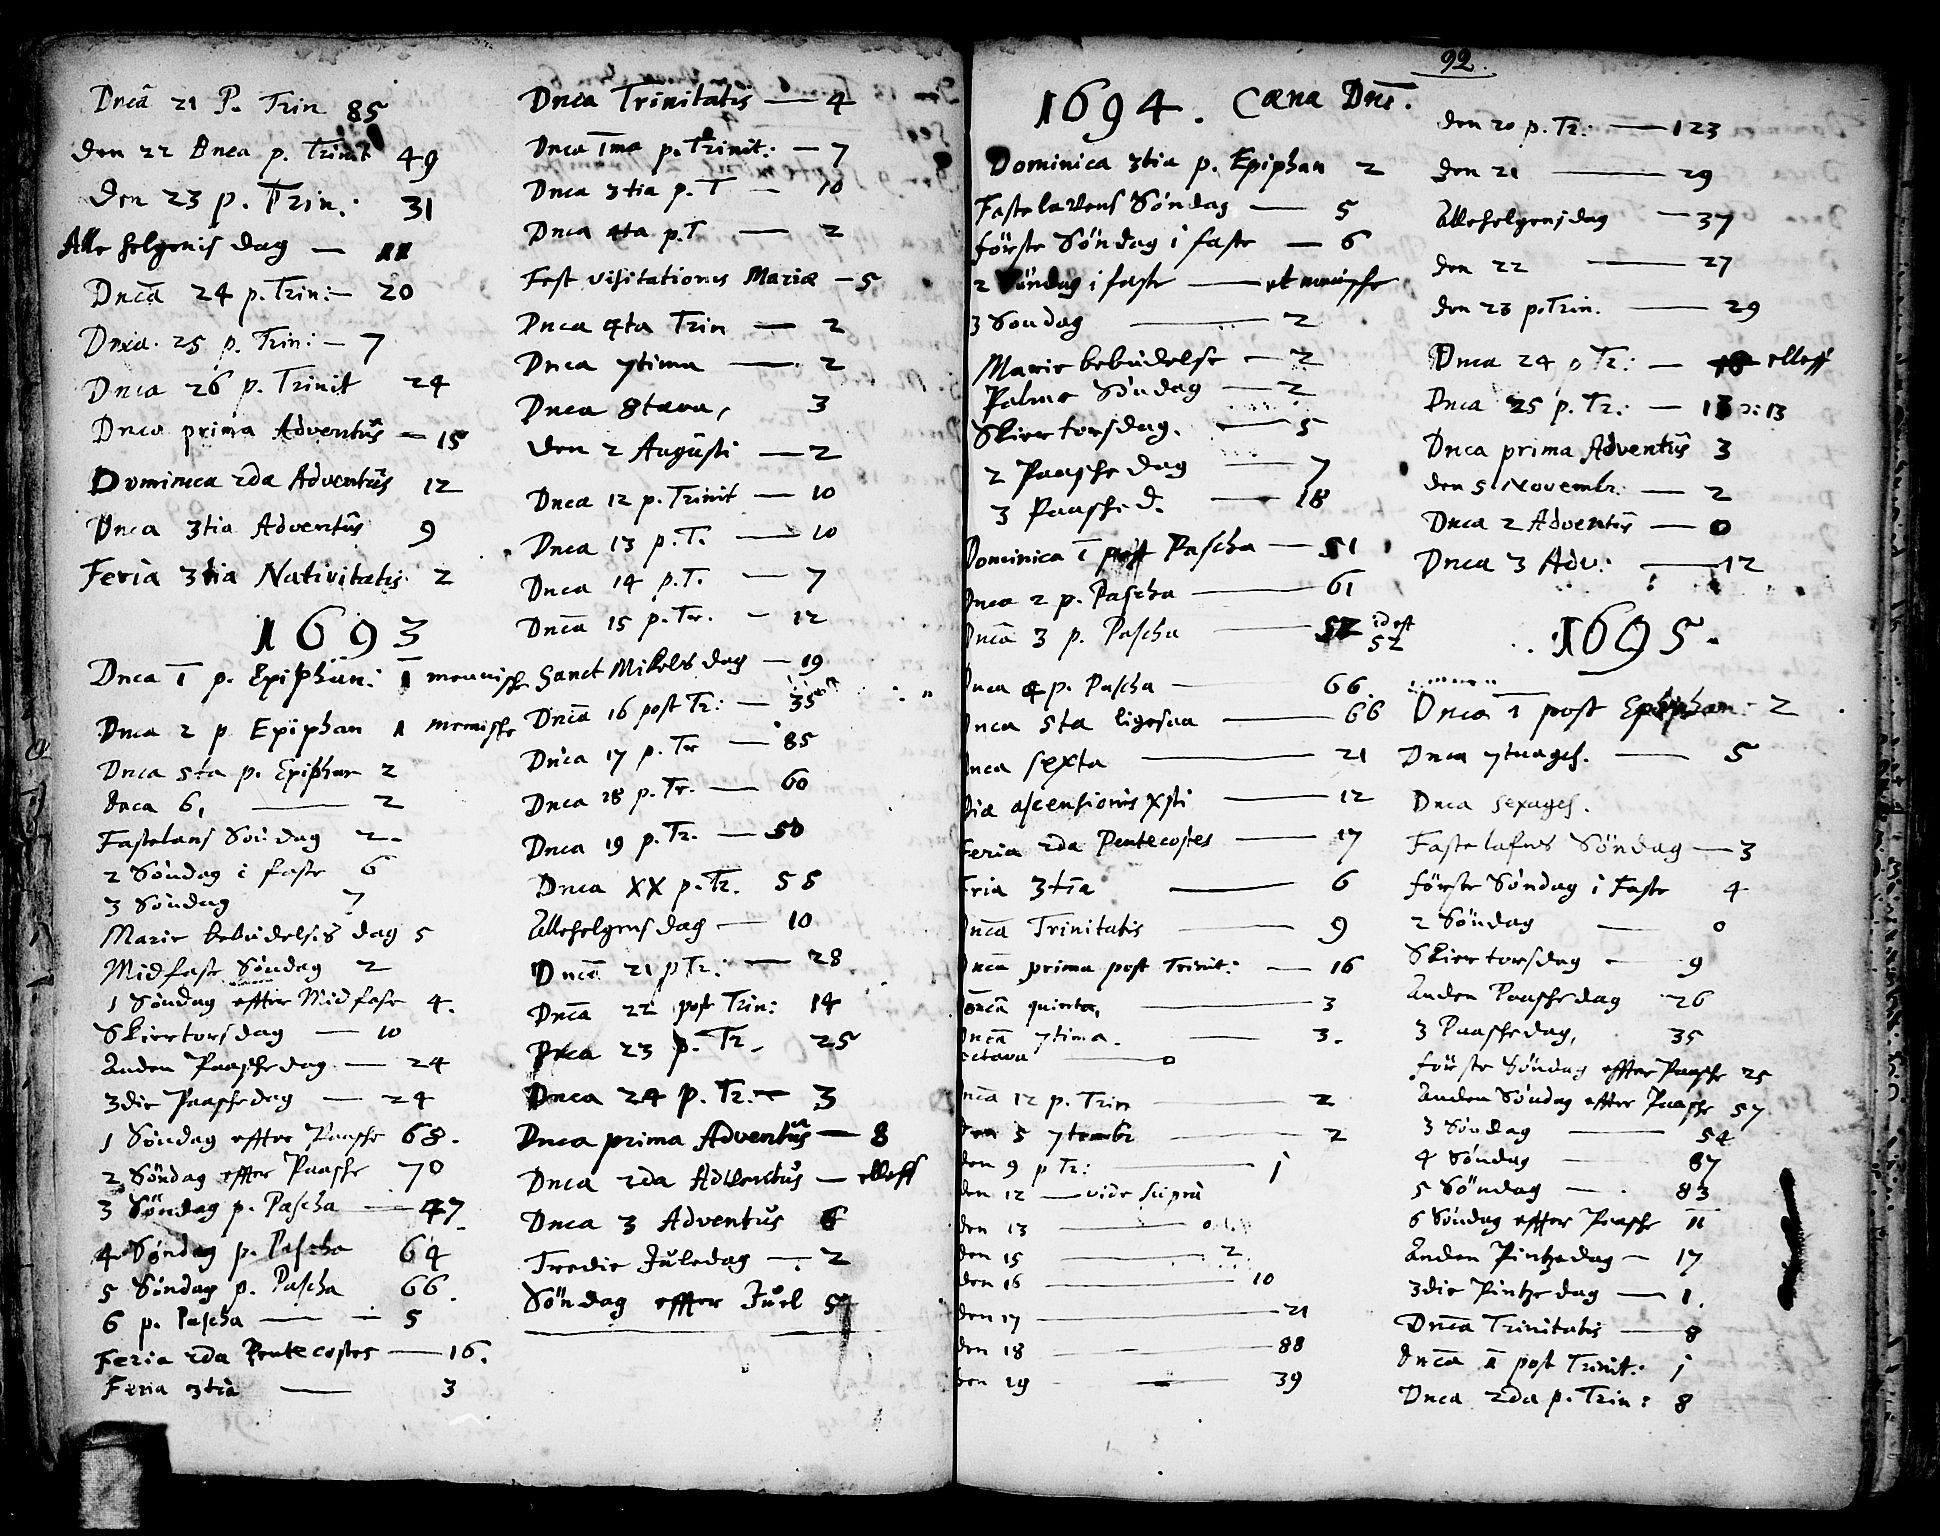 Dnca 21 P. Trin 85
den 22 Dnca p. Trinit 49
den 23 p. Trin: 31
Alle helgenis dag — 11
Dnca 24 p. Trin: — 20
Dnca. 25 p. Trin: — 7
Dnca 26 p. Trinit 24
Dnca prima Adventus — 15
Dominica 2da Adventus 12
Dnca 3tia Adventus 9
Feria 3tia Nativitatis 2
1693
Dnca 1 p. Epiphan: 1 mennische
Dnca 2 p Epiphan 1 mennische
Dnca 5ta p. Epiphan 2
Dnca 6, — 2
Fastelans Søndag 2.
2 Søndag i faste 6
3 Søndag 7
Marie bebudelsis dag 5
Midfaste Søndag 2
1 Søndag effter Midfaste 4.
Skiertorsdag — 10
Anden Paaschedag — 24
3die Paaschedag — 24
1 Søndag effter Paasche 68.
2 Søndag effter Paasche 70
3 Søndag p. Pascha — 47
4 Søndag p. Pascha 64
5 Søndag p. Pascha 66.
6 p. Pascha — 5
Feria 2da Pentecostes — 16.
Feria 3tia — 3
Dnca Trinitatis — 4
Dnca 1ma p. Trinit: — 7
Dnca 3tia p. T — 10
Dnca 4ta p. T — 2
Fest visitationis Mariæ — 5
Dnca 4ta Trin — 2
Dnca 7tima — 2
Dnca 8tava, 3
den 2 Augusti — 2
Dnca 12 p. Trinit — 10
Dnca 13 p. T. — 10
Dnca 14 p. T. — 7
Dnca 15 p. Tr. — 12
Sanct Mikels dag — 19
Dnca 16 post Tr: — 35
Dnca 17 p. Tr — 85
Dnca 18 p. Tr. — 60
Dnca 19 p. Tr. — 50
Dnca XX p. Tr. 58
Allehelgensdag — 10
Dnca 21 p Tr: — 28
Dnca 22 post Trin: 14
Dnca 23 p. Tr. 25
Dnca 24 p. Tr. — 3
Dnca prima Adventus — 8
Dnca 2da Adventus — elleff
Dnca 3 Adventus 6
Tredie Juledag — 2
Søndag effter Juel
92.
1694. Cæna Dni.
Dominica 3tia p. Epiphan 2
Fastelavens Søndag — 5
første Søndag i faste — 6
2 Søndag i faste — et mennische
3 Søndag — 2
Marie bebudelse — 2
Palme Søndag — 2
Skiertorsdag. — 5
2 Paasche dag — 7
3 Paasche d. — 18
Dominica 1 post Pascha — 51
Dnca 2 p. Pascha — 61
Dnca 3 p. Pascha — 52 id est 52
Dnca 4 p. Pascha — 66.
Dnca 5ta — 66
Dnca sexta — 21
Dia ascensionis Xsti — 12
Feria 2da Pentecostes — 17
Fria 3tia — 6
Dnca Trinitatis — 9
Dnca prima post Trinit: — 16
Dnca quinta, — 3
Dnca 7tima. — 3.
octava — 0
Dnca 12 p. Trin — 2
Den 5 7tembr — 2
den 9 p Tr: — 1
den 12 — vide supra
den 13 — 0
den 15 — 2
den 16 — 10
den 17 — 21
den 18 — 88
den 19 — 39
den 20 p. Tr: — 123
den 21 — 29
Allehelgensdag — 37
den 22 — 27
den 23 p. Trin. — 29
Dnca 24 p Tr: — elleff
Dnca 25 p. Tr: — 13 ɔ: 13
Dnca prima Adventus 3
den 5 Novembr: — 2
Dnca 2 Adventus — 0
Dnca 3 Adv: — 12
1695.
Dnca 1 post Epiphan: 2
Dnca 7tuages. — 5
Dnca sexages.
Fastelafns Søndag — 3
første Søndag i Faste 4
2 Søndag — 0
Skiertorsdag — 9
Anden Paaschedag 26
3 Paaschedag, 35
første Søndag effter Paasche 25
Anden Søndag effter Paasche 57
3 Søndag — 54
4 Søndag — 87
5 Søndag — 83
6 Søndag effter Paasche 11
Anden Pintzedag — 17
3die Pintze dag — 1.
Dnca Trinitatis — 8
Dnca 1 post Trinit: 1
Dnca 2da p. Trin: 8